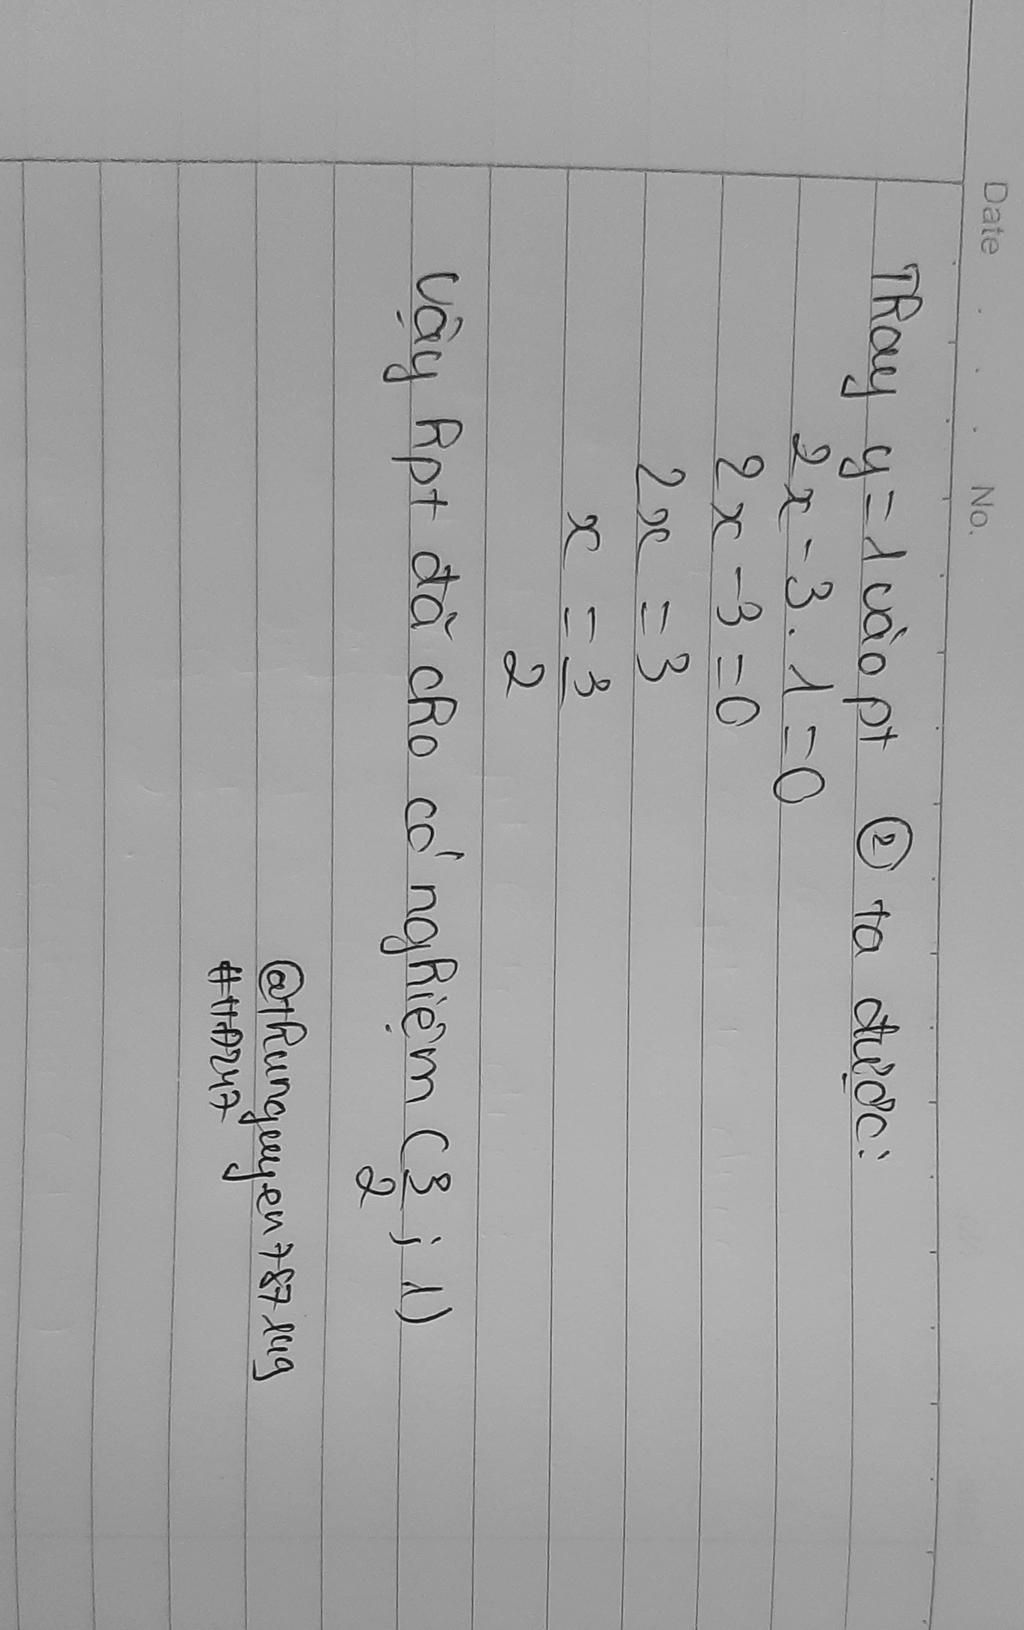 Date . . . No.
Thay y = 1 vào pt ② ta được:
2x - 3 . 1 = 0
2x - 3 = 0
2x = 3
x = 3/2
Vậy hpt đã cho có nghiệm (3/2 ; 1)